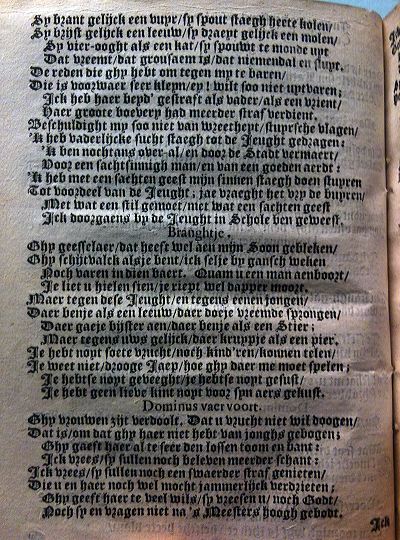 Sy brant gelijck een vuyr/ sy spout staegh heete kolen/
Sy brijst gelijck een leeuw/ sy draeyt gelijck een molen/
Sy vier-ooght als een kat/ sy spouwt te mondt uyt
Dat vreemt/ dat grousaem is/ dat niemendal en stuyt.
De reden die ghy hebt om tegen my te baren/
Die is voorwaer seer kleyn/ ey! wilt soo niet uytvaren;
Ick heb haer beyd' gestraft als vader/ als een vrient/
Haer groote boevery had meerder straf verdient.
Beschuldight my soo niet van wreetheyt/ stuyrsche vlagen/
'k Heb vaderlijcke sucht staegh tot de Jeught gedragen:
'k Ben nochtans over-al/ en door de Stadt vermaert/
Voor een sachtsinnigh man/ en van een goeden aerdt:
'k Heb met een sachten geest mijn sinnen staegh doen stuyren
Tot voordeel van de Jeught; jae vraeght het vry de buyren/
Met wat een stil gemoet/ met wat een sachten geest
Ick doorgaens by de Jeught in Schole ben geweest.
Branghtje.
Ghy geesselaer/ dat heeft wel aen mijn Soon gebleken/
Ghy schijtvalck alsje bent/ ick selje by gansch weken
Noch varen in dien baert. Quam u een man aenboort/
Je liet u hielen sien/ je riept wel dapper moort.
Maer tegen dese Jeught/ en tegens eenen jongen/
Daer benje als een leeuw/ daer doeje vreemde sprongen/
Daer gaeje bijster aen/ daer benje als een Stier;
Maer tegens uws gelijck/ daer kruypje als een pier.
Je hebt noyt soete vrucht/ noch kind'ren/ konnen telen/
Je weet niet/ drooge Jaep/ hoe ghy daer me moet spelen;
Je hebtse noyt geveeght/ je hebtse noyt gesust/
Je hebt geen lieve kint noyt voor syn aers gekust.
Dominus vaer voort.
Ghy vrouwen zijt verdoolt. Dat u vrucht niet wil doogen/
Dat is/ om dat ghy haer niet hebt van jonghs gebogen;
Ghy gaeft haer al te seer den lossen toom en bant:
Ick vrees/ sy sullen noch beleven meerder schant:
Ick vrees/ sy sullen noch een swaerder straf genieten/
Die u en haer noch wel mocht jammerlijck verdrieten;
Ghy geeft haer te veel wils/ sy vreesen u/ noch Godt/
Noch sy en vragen niet na 's Meesters hoogh gebodt.
Ick